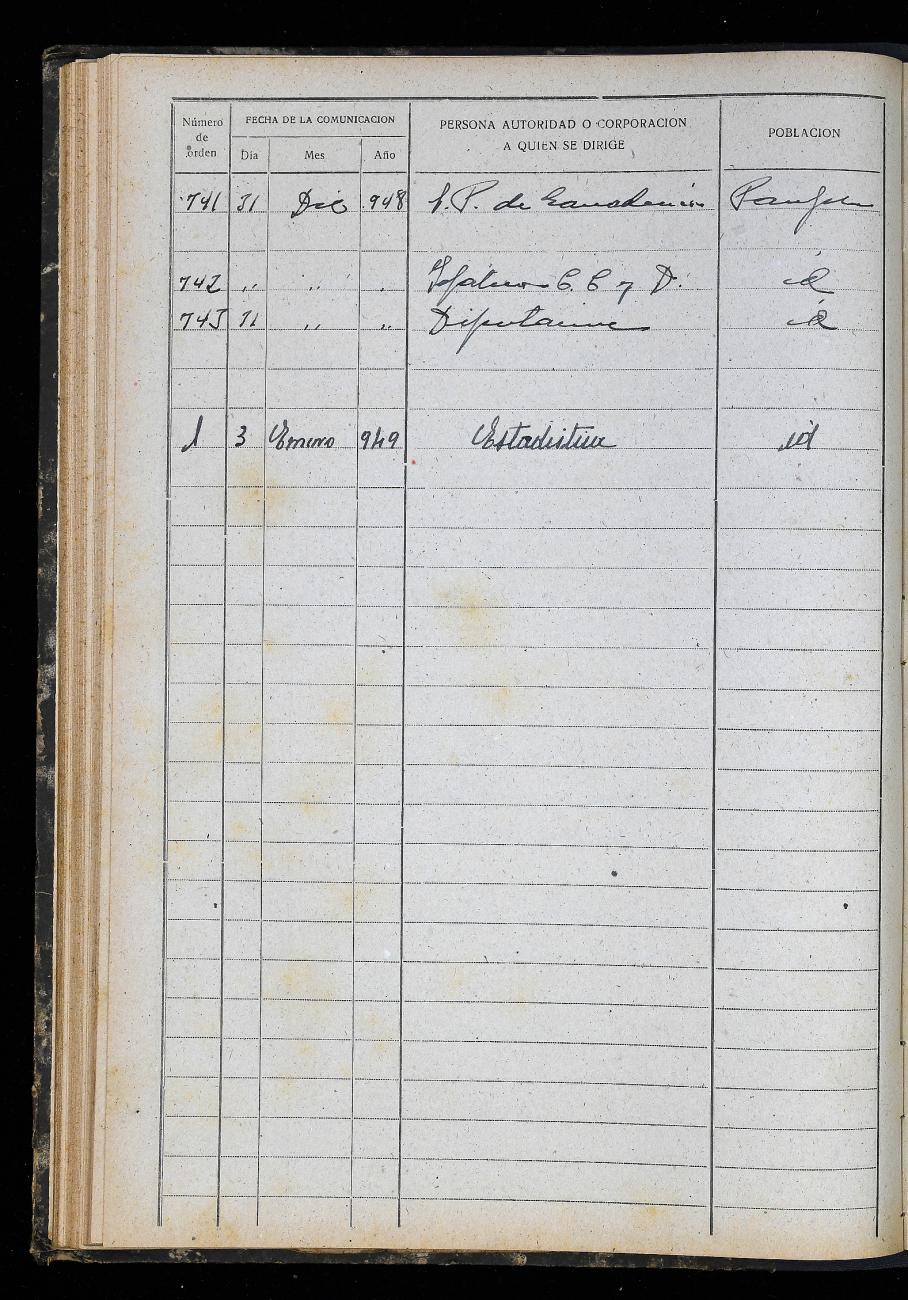 Número de orden FECHA DE LA COMUNICACION PERSONA AUTORIDAD O CORPORACION A QUIEN SE DIRIGE POBLACION
Día Mes Año
741 31 Dic 948 J. P. de Ganaderia
742 " " " C. C y D. id
743 31 " " Diputacion id
1 3 Enero 949 Estadistica id